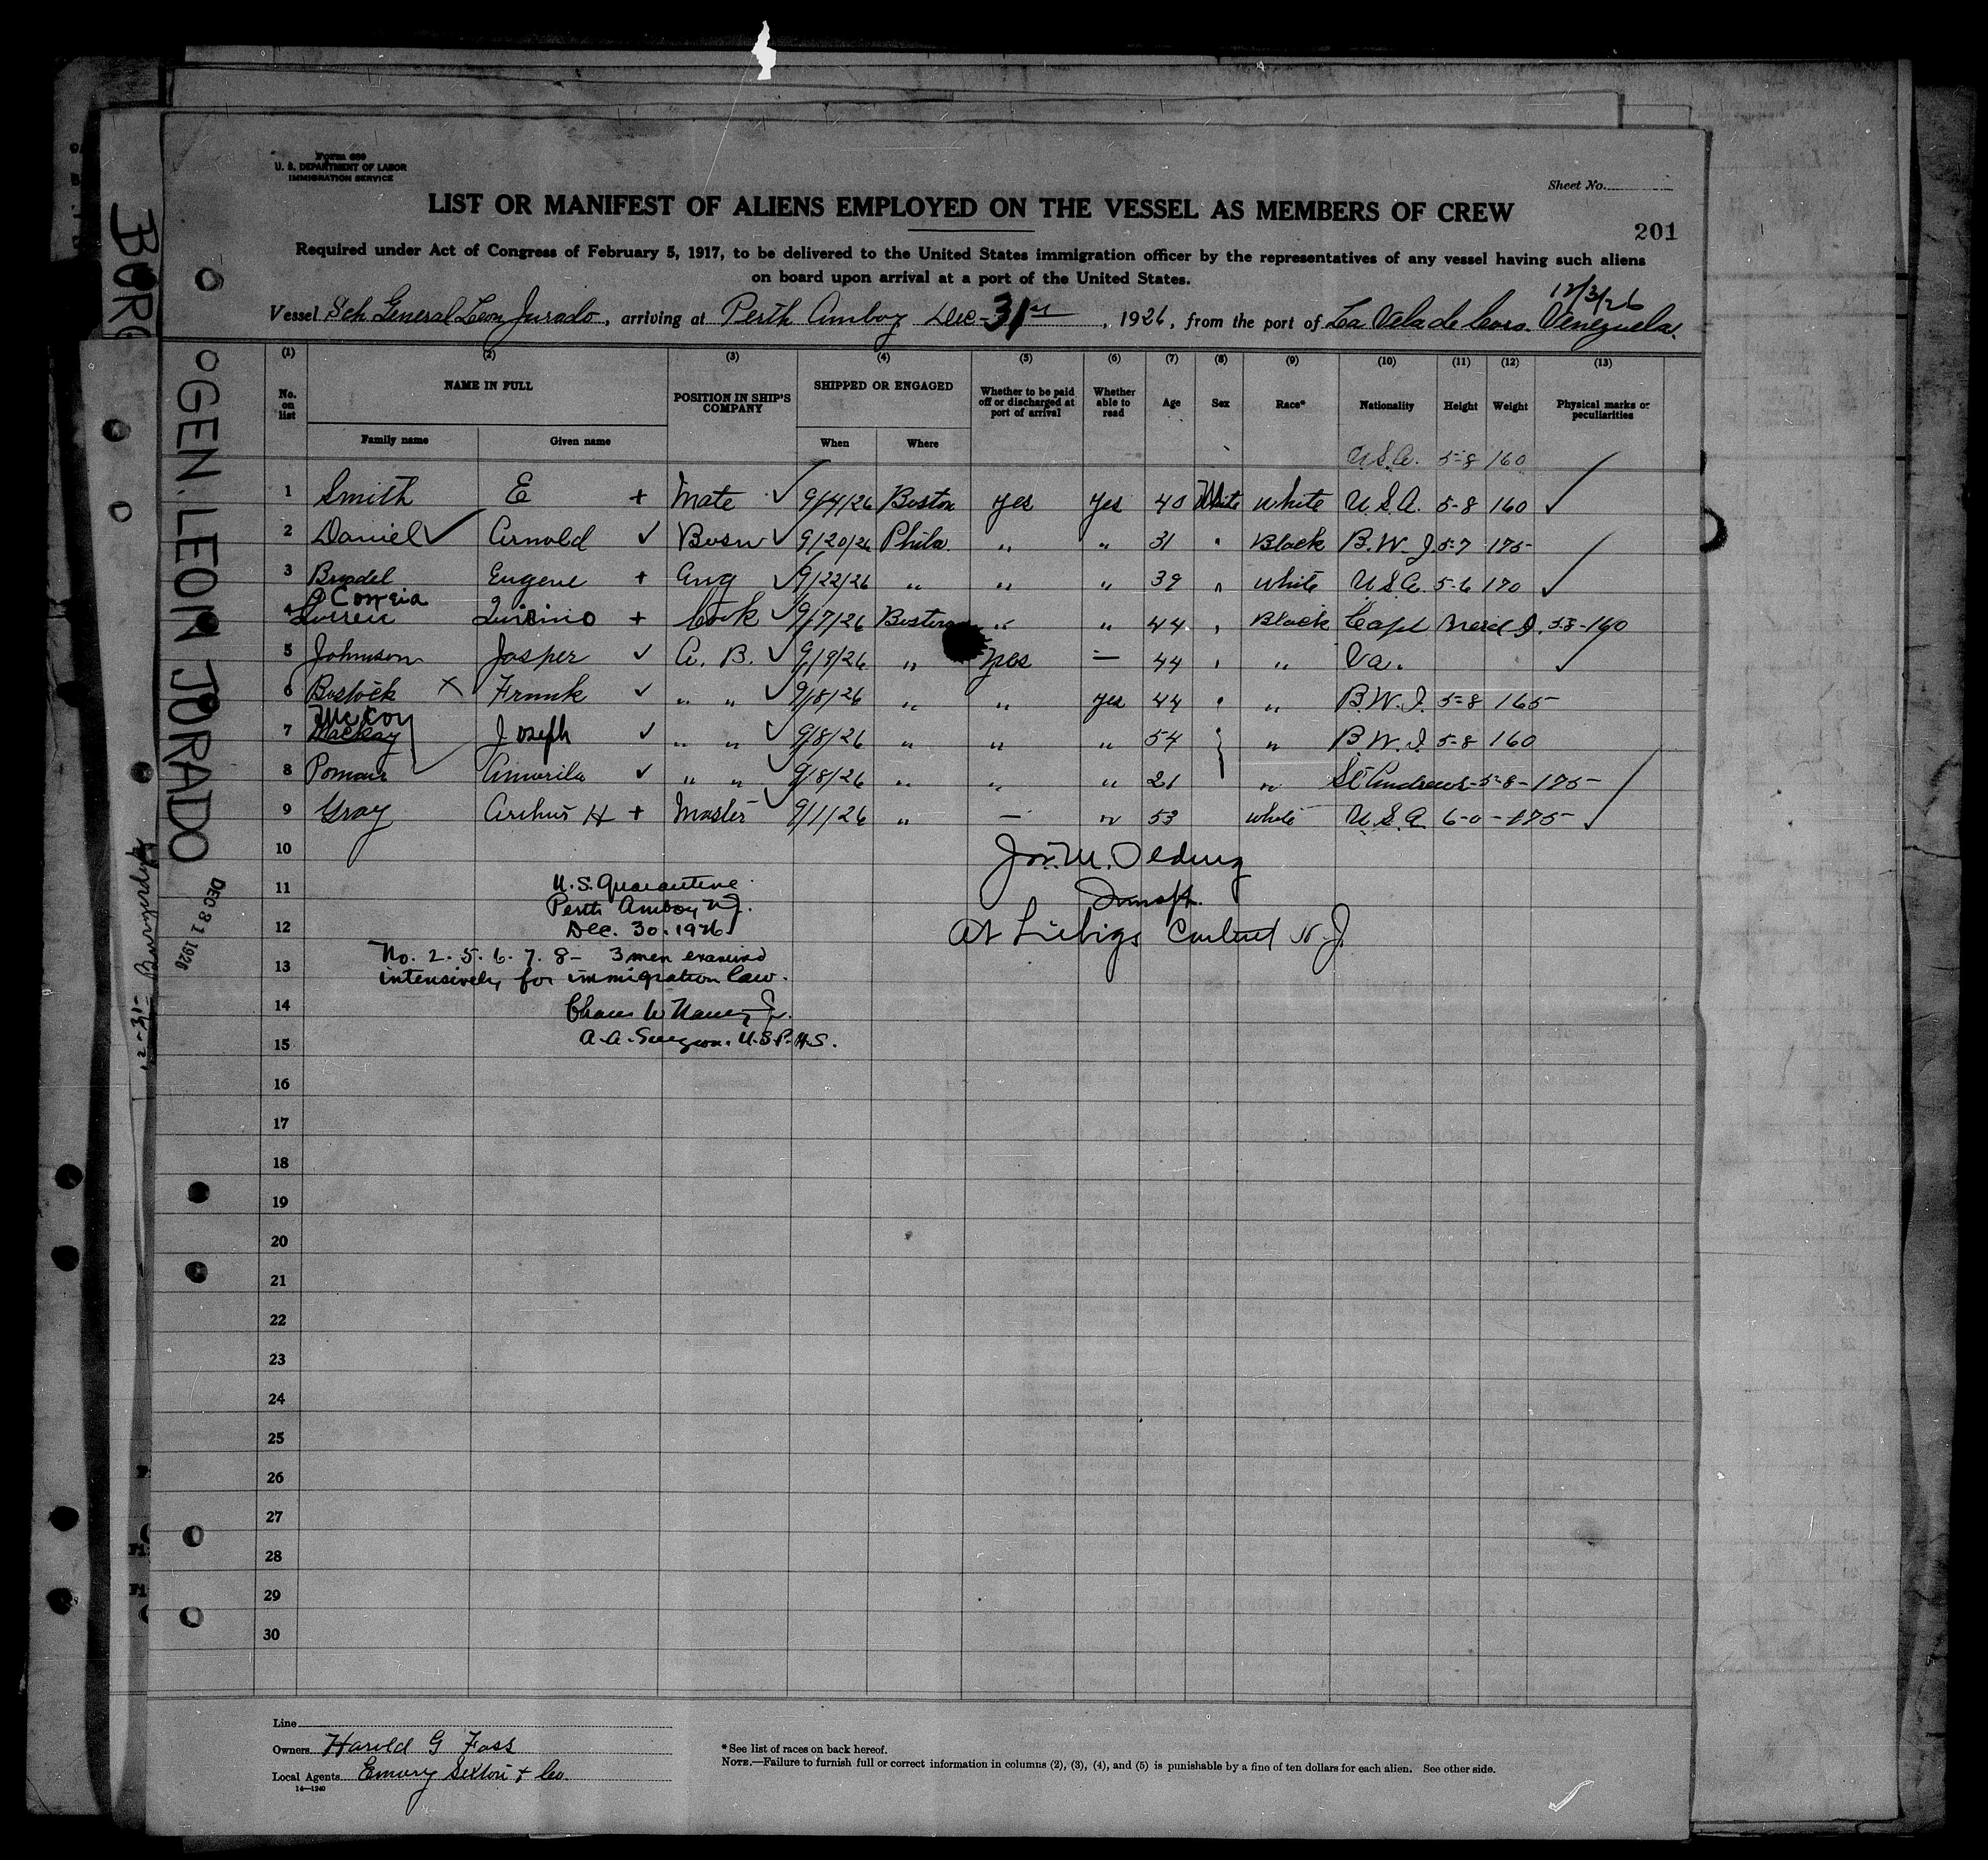 Form 680
U. S. DEPARTMENT OF LABOR
IMMIGRATION SERVICE
Sheet No.
LIST OR MANIFEST OF ALIENS EMPLOYED ON THE VESSEL AS MEMBERS OF CREW
201
Required under Act of Congress of February 5, 1917, to be delivered to the United States immigration officer by the representatives of any vessel having such aliens
on board upon arrival at a port of the United States.
12/3/26
Vessel Sch General Leon Jurado, arriving at Perth Amboy Dec 31st, 1926, from the port of La Vela de Coro. Venezuela.
(1) (2) (3) (4) (5) (6) (7) (8) (9) (10) (11) (12) (13)
No. on list NAME IN FULL POSITION IN SHIP'S COMPANY SHIPPED OR ENGAGED Whether to be paid off or discharged at port of arrival Whether able to read Age Sex Race* Nationality Height Weight Physical marks or peculiarities
Family name Given name When Where
U.S.A. 5-8 160
1 Smith E + Mate ✓ 9/14/26 Boston yes yes 40 White U.S.A. 5-8 160 ✓
2 Daniel ✓ Arnold ✓ Bosn ✓ 9/20/26 Phila. " " 31 " Black B.W.I. 5-7 175
3 Eugene + Eng ✓ 9/22/26 " " " 39 " White U.S.A. 5-6 170 ✓
Correia
4 + Cook ✓ 9/7/26 Boston " " 44 " Black 5-8-160
5 Johnson Jasper ✓ A. B. ✓ 9/9/26 " yes — 44 " " Va. ✓
6 Bostock X Frank ✓ " " ✓ 9/8/26 " " yes 44 " " B.W.I. 5-8 165
McKoy
7 Mackay Joseph ✓ " " ✓ 9/8/26 " " " 54 " B.W.I. 5-8 160
8 ✓ " " ✓ 9/8/26 " " " 21 " St Andrews-5-8-175
9 Gray Arthur H + Master ✓ 9/1/26 " — " 53 White U.S.A. 6-0-175 ✓
10
11
12
13
14
15
16
17
18
19
20
21
22
23
24
25
26
27
28
29
30
Jos. M. Olding
At Liebigs Carteret N.J.
U.S. Quarantine
Perth Amboy N.J.
Dec. 30. 1926
No. 2. 5. 6. 7. 8 - 3 men examined
intensively for immigration law.
A.A. Surgeon. U.S.P.H.S.
GEN. LEON JURADO
DEC 31 1926
Line
Owners Harold G Foss
Local Agents Emery Sexton & Co.
14—1240
*See list of races on back hereof.
NOTE.—Failure to furnish full or correct information in columns (2), (3), (4), and (5) is punishable by a fine of ten dollars for each alien. See other side.